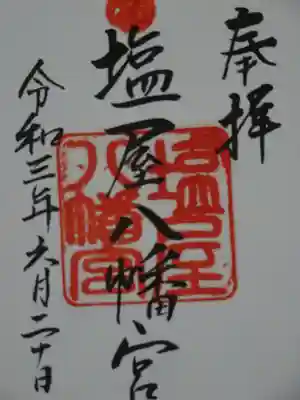 奉拝
塩屋八幡宮
令和三年六月二十日
塩屋
八幡宮